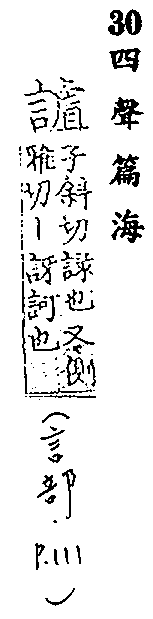 30四聲篇海
子斜切詠也又側
雅切丨訝訶也
(言部·P.111)